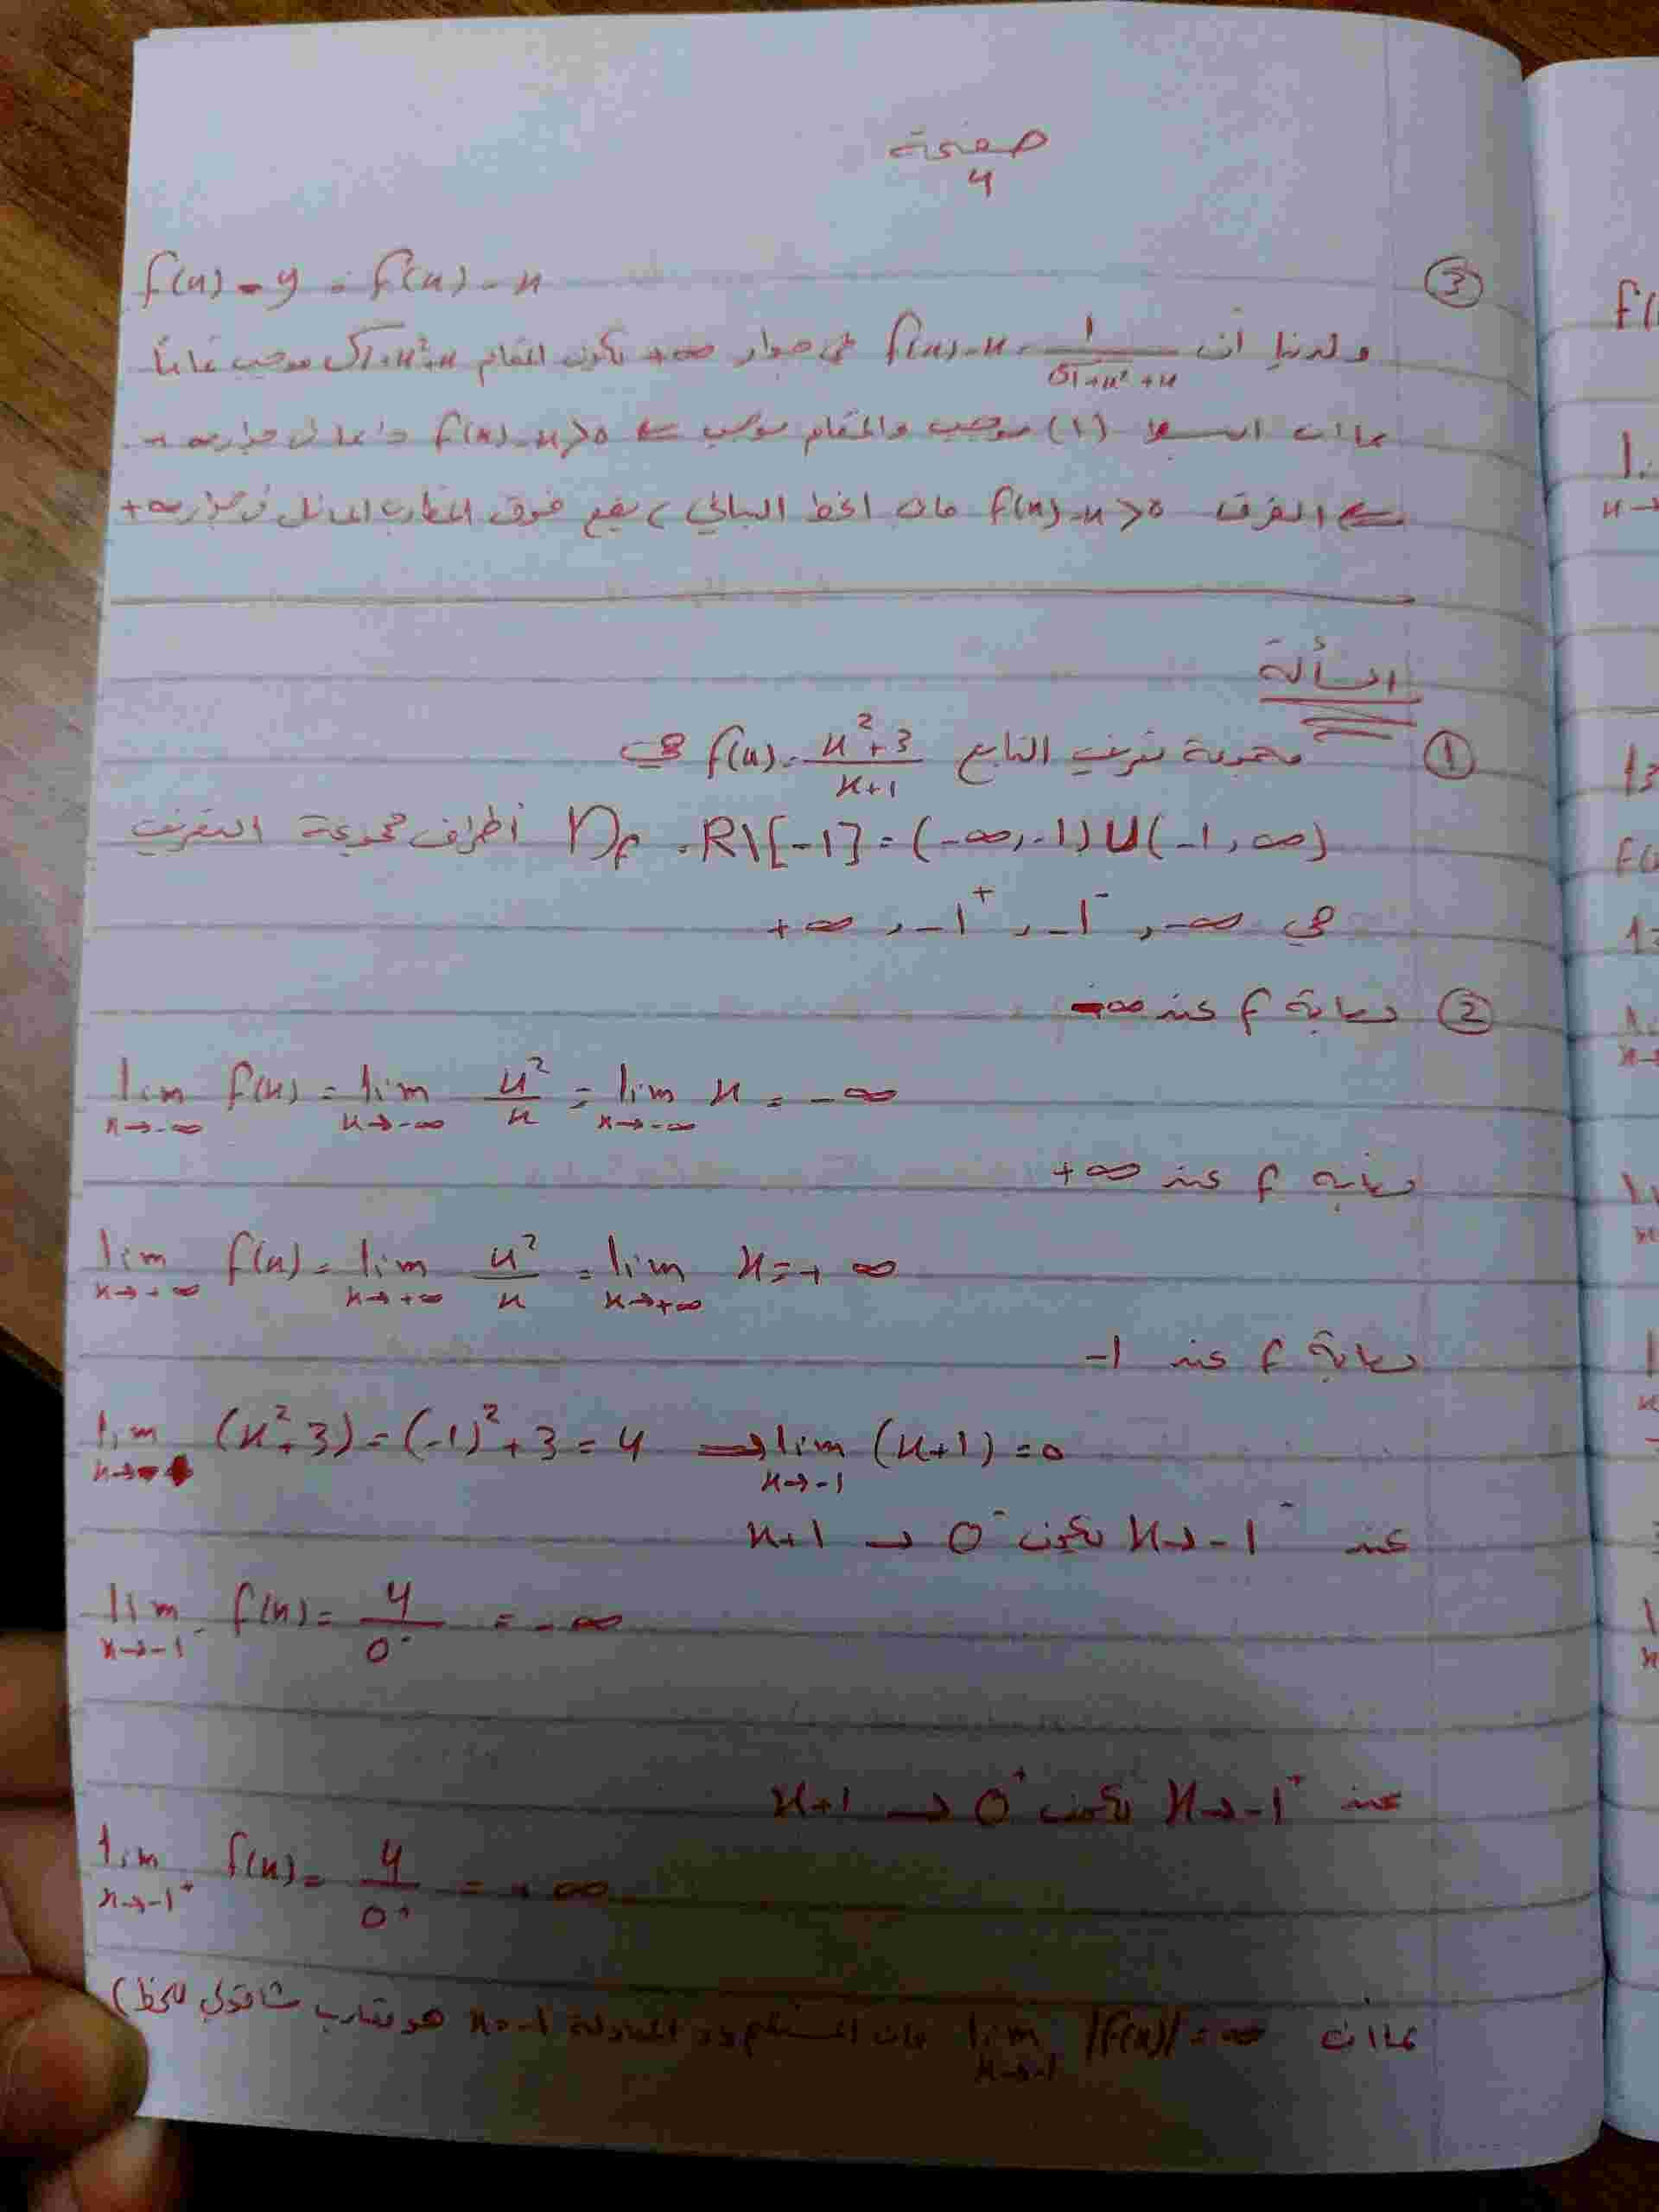 صفحة
4
③ f(x) - y = f(x) - x
ولدينا أن f(x) - x = 1/(√1+x² + x) في جوار +∞ يكون المقام √1+x² + x موجب تماماً
بما أن البسط (1) موجب والمقام موجب ⇐ f(x) - x > 0 دائما في جوار
⇐ الفرق f(x) - x > 0 فإن الخط البياني C يقع فوق المقارب المائل في جوار +∞
المسألة
① مجموعة تعريف التابع f(x) = (x²+3)/(x+1) هي
D_f = R\[-1} = (-∞, -1) U (-1, ∞) أطراف مجموعة التعريف
هي -∞, -1⁻, -1⁺, +∞
② نهاية f عند -∞
lim x→-∞ f(x) = lim x→-∞ x²/x = lim x→-∞ x = -∞
نهاية f عند +∞
lim x→+∞ f(x) = lim x→+∞ x²/x = lim x→+∞ x = +∞
نهاية f عند -1
lim (x²+3) = (-1)²+3 = 4 ⇒ lim x→-1 (x+1) = 0
عند x→-1⁻ يكون x+1 → 0⁻
lim x→-1⁻ f(x) = 4/0⁻ = -∞
عند x→-1⁺ يكون x+1 → 0⁺
lim x→-1⁺ f(x) = 4/0⁺ = +∞
بما أن lim x→-1 |f(x)| = ∞ فإن المستقيم ذو المعادلة x = -1 هو مقارب شاقولي للخط C